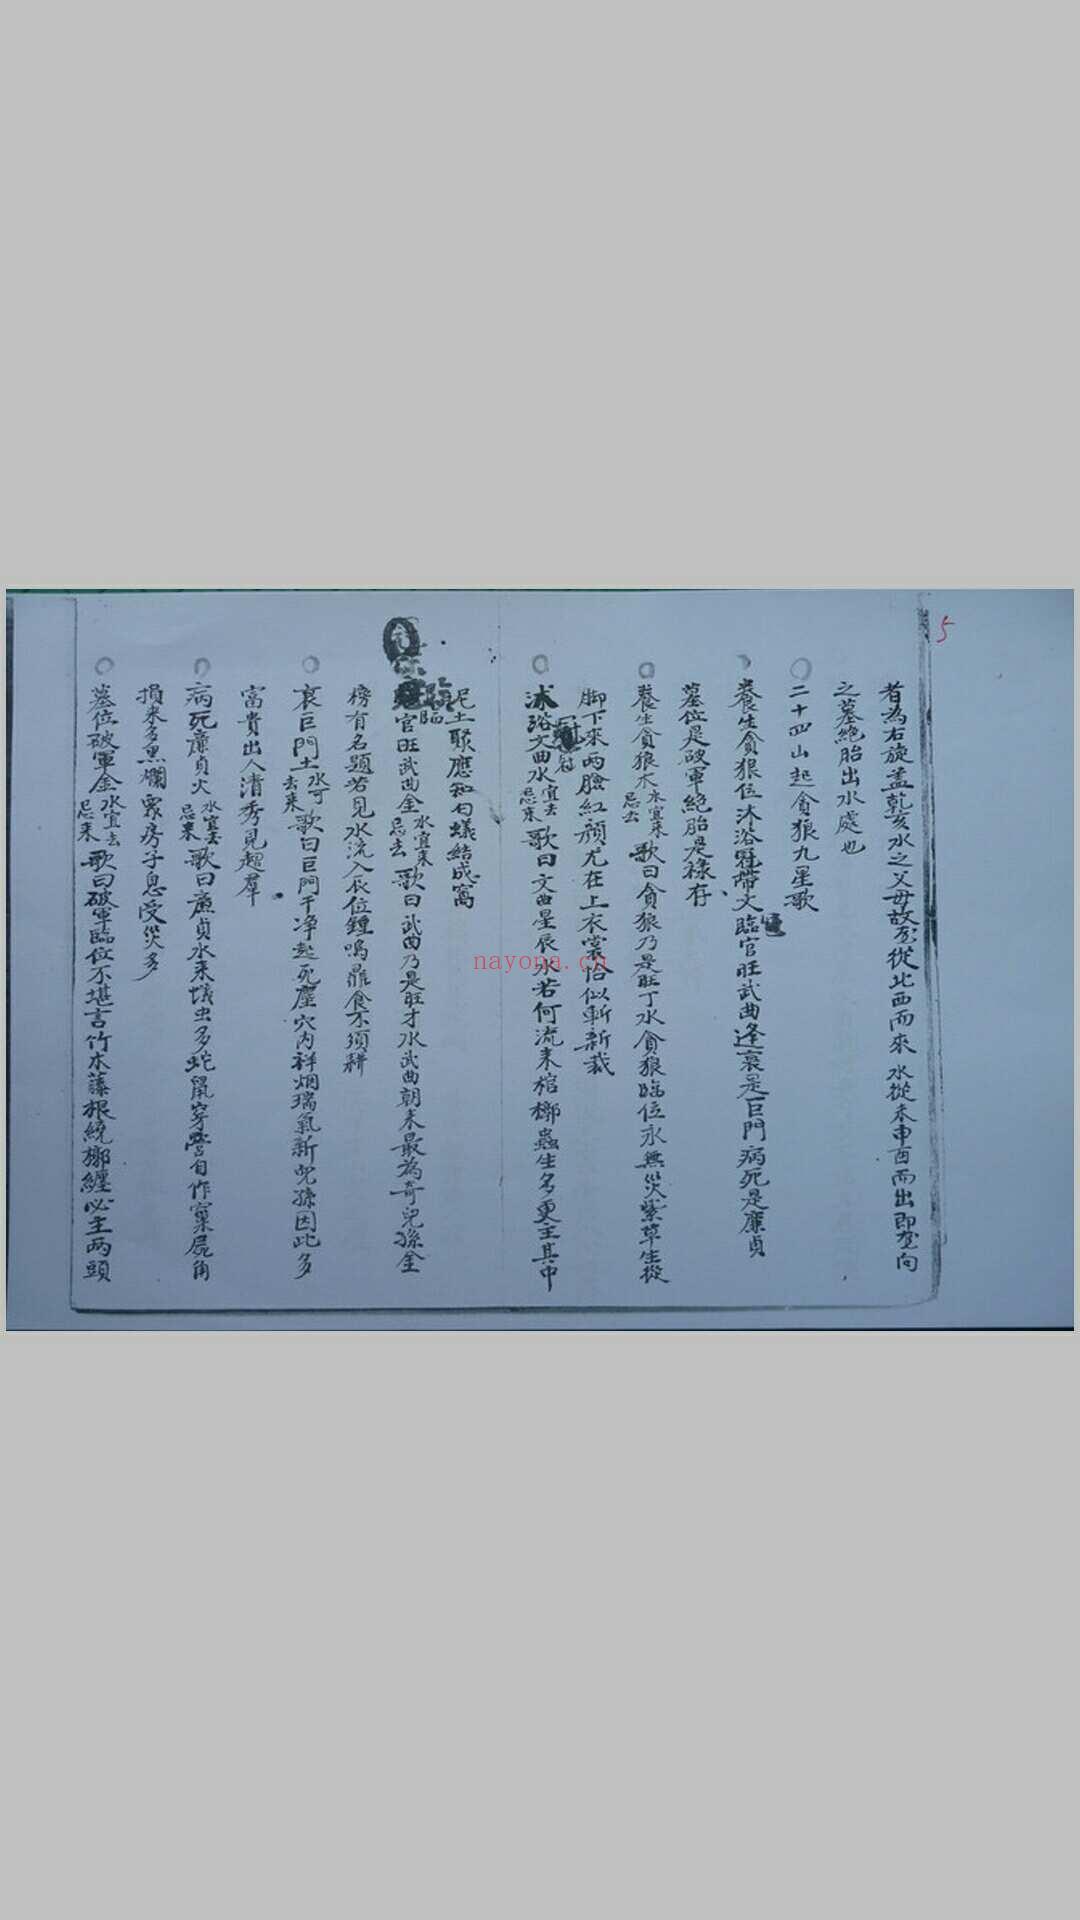 5
者為右旋盖乾亥水之父母故 從北西而來水從未申酉而出即 向
之墓絕胎出水處也
二十四山起貪狼九星歌
養生貪狼位沐浴冠帶文臨官旺武曲逢衰是巨門病死是廉貞
墓位是破軍絕胎是祿存
養生貪狼木水宜來忌去歌曰貪狼乃是旺丁水貪狼臨位永無災紫草生從
脚下來兩臉紅顏尤在上衣裳恰似斬新裁
沐浴文曲水宜去忌來歌曰文曲星辰水若何流來棺槨蟲生多更主其中
泥土聚應知勾蟻結成窩
臨官旺武曲金水宜來忌去歌曰武曲乃是旺才水武曲朝來最為奇兒孫金
榜有名題若見水流入辰位鍾鳴鼎食不須耕
衰巨門土水可去來歌曰巨門干净起死塵穴內祥烟瑞氣新兒孫因此多
富貴出人清秀見超羣
病死廉貞火水宜去忌來歌曰廉貞水來蟻虫多蛇鼠穿營自作窠屍角
損來多黑爛 房子息受災多
墓位破軍金水宜去忌來歌曰破軍臨位不堪言竹木藤根繞槨纏必主兩頭
nayona.cn